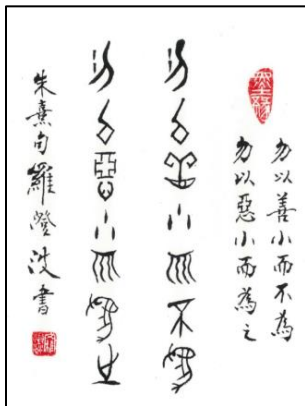 勿以善小而不為
勿以惡小而為之
勿以善小而不為
勿以惡小而為之
朱熹句羅澄波書